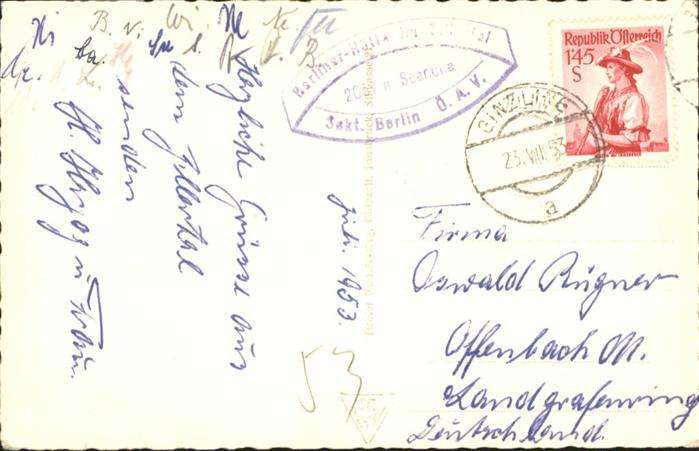 Hi B. v. Wi Ne
Herzliche Grüsse aus
dem Zillertal
senden
H. Herzog u. Frau.
Juli. 1953.
53
Berliner-Hütte im Zillertal
Seehöhe
Sekt. Berlin Ö.A.V.
Republik Österreich
1'45
S
GINZLING
23.VIII.53
a
Firma
Oswald Rügner
Offenbach M.
Landgrafenring
Deutschland.